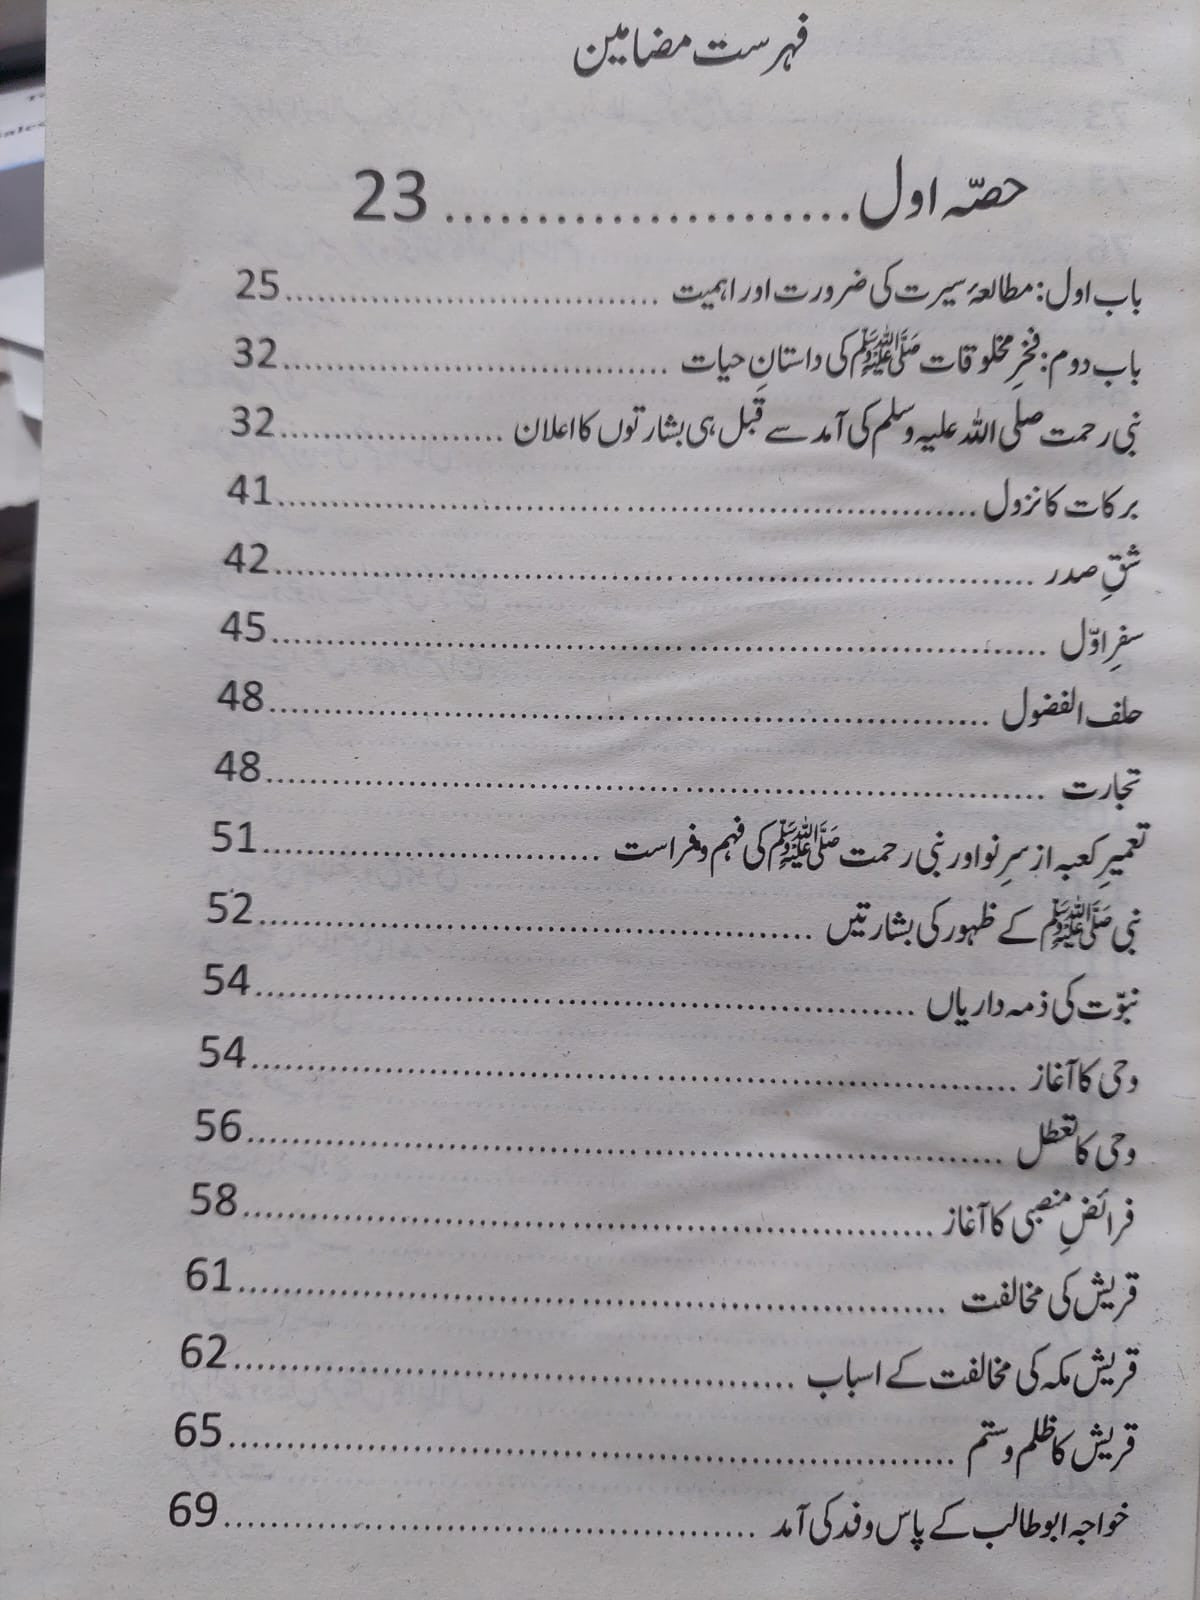 فہرست مضامین
حصّہ اول ...................... 23
باب اول: مطالعۂ سیرت کی ضرورت اور اہمیت ................................... 25
باب دوم: فخرِ مخلوقات ﷺ کی داستانِ حیات .................................... 32
نبی رحمت صلی اللہ علیہ وسلم کی آمد سے قبل ہی بشارتوں کا اعلان ..................... 32
برکات کا نزول .................................................................. 41
شقِ صدر ....................................................................... 42
سفرِ اوّل ....................................................................... 45
حلف الفضول .................................................................. 48
تجارت ......................................................................... 48
تعمیرِ کعبہ از سرِ نو اور نبی رحمت ﷺ کی فہم و فراست ................................ 51
نبی ﷺ کے ظہور کی بشارتیں .................................................... 52
نبوّت کی ذمہ داریاں ............................................................ 54
وحی کا آغاز .................................................................... 54
وحی کا تعطل .................................................................... 56
فرائضِ منصبی کا آغاز ............................................................ 58
قریش کی مخالفت ................................................................ 61
قریش مکہ کی مخالفت کے اسباب .................................................. 62
قریش کا ظلم و ستم ............................................................... 65
خواجہ ابو طالب کے پاس وفد کی آمد ................................................ 69